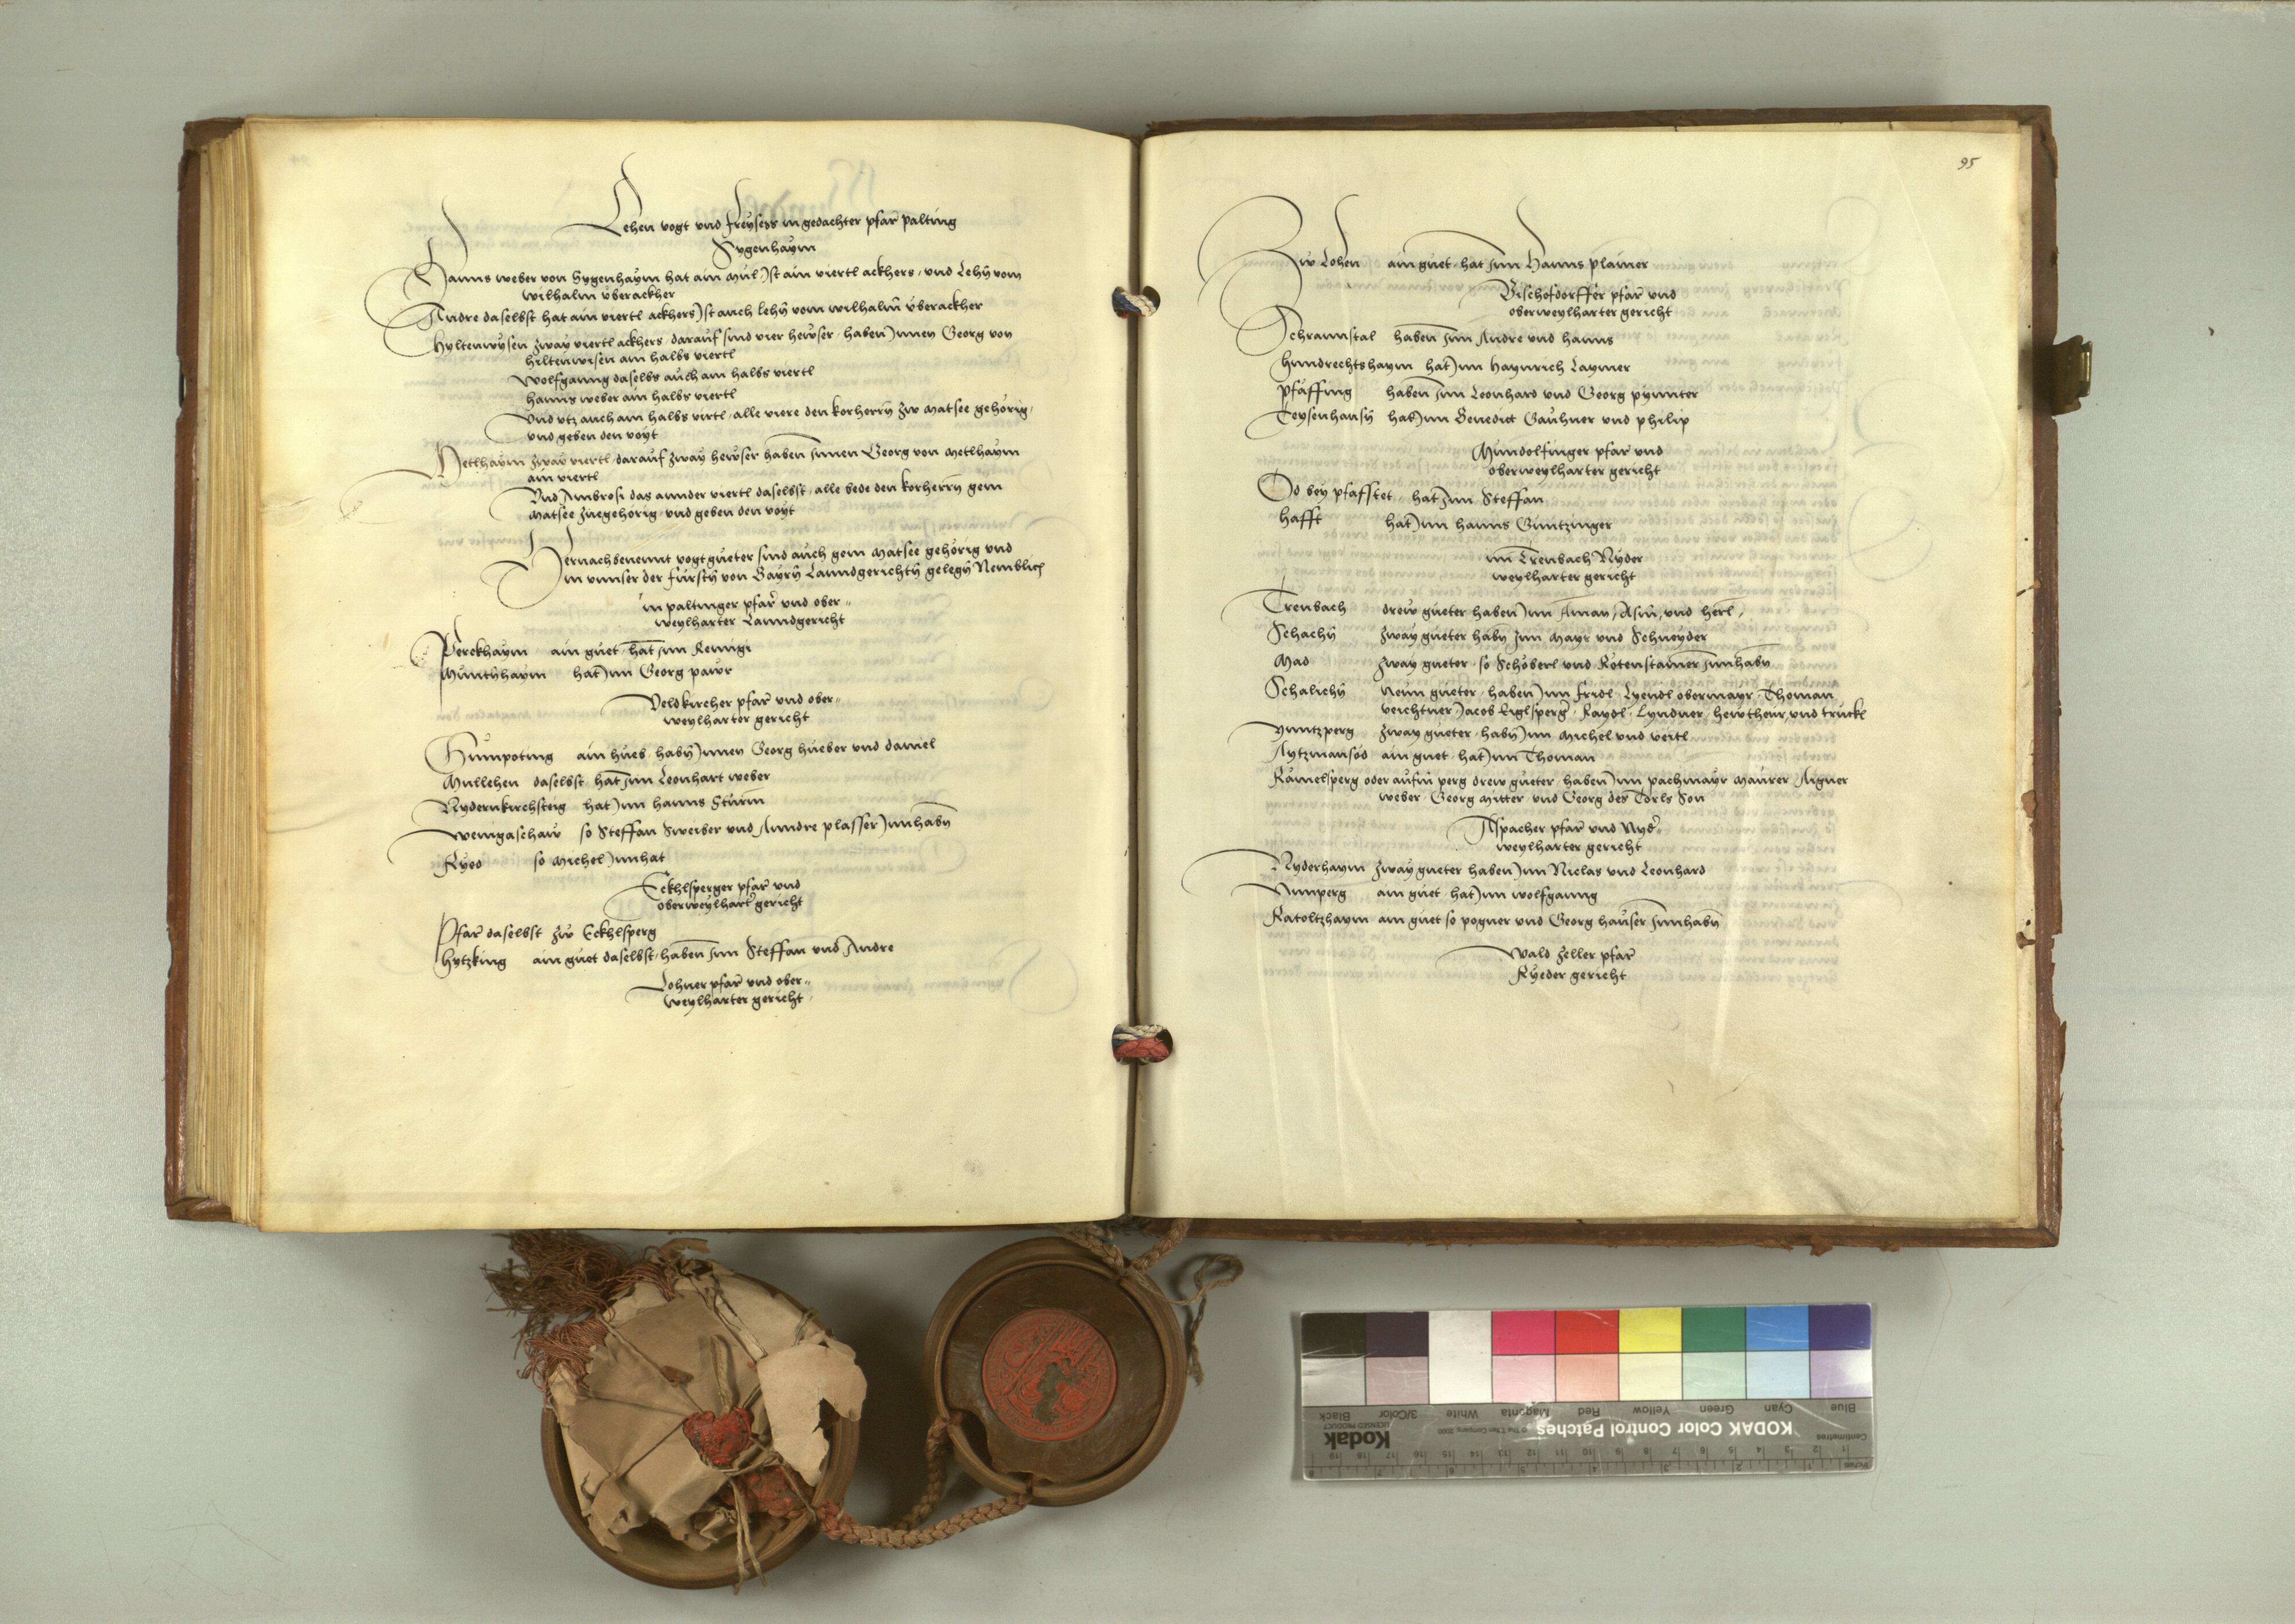 Lehen vogt und freysess in gedachter pfar palting
Sygenhaym
Hanns weber von Sygenhaym hat ain mul Ist ain viertl ackhers, und Lehn vom
wilhalm uberackher
Andre daselbst hat ain viertl ackhers Ist auch lehn vom wilhalm uberackher
Hyltenwysen zway viertl ackhers, darauf sind vier hewser, haben Innen Georg von
hiltenwisen ain halbs viertl
Wolfgang daselbs auch ain halbs viertl
hanns weber ain halbs viertl
Und utz auch ain halbs virtl, alle viere den korherrn zw Matsee gehörig,
und geben den voyt
Metlhaym zway viertl, darauf zway hewser haben Innen Georg von Metlhaym
ain viertl
Und Ambrosi das annder viertl daselbst, alle bede den korherrn gein
Matsee zuegehorig, und geben den voyt
Hernachbenennt vogtgueter sind auch gein Matsee gehörig und
in unnser der fürstn von Bayrn Lanndgerichtn gelegn Nemblich
in paltinger pfar und ober„
weylharter Lanndgericht
Perckhaym ain guet, hat Inn Remigi
Munthaym hat Inn Georg pawr
Veldkircher pfar und ober„
weylharter gericht
Humpoting ain hueb, habn Innen Georg hueber und daniel
Mullehen daselbst hat Inn Leonhart weber
Nydernkirchsteig hat Inn hanns Sturm
Wenigaschaw so Steffan Sweiber und Anndre plasser Innhabn
Ryed so Michel Innhat
Eckhlsperger pfar und
oberweylhart gericht
Pfar daselbst zw Eckhlsperg
hytzking ain guet daselbst, haben Inn Steffan und Andre
Lohner pfar und ober„
weylharter gericht
95
Zw Lohen ain guet, hat Inn Hanns plainer
Bischofdorffer pfar und
oberweylharter gericht
Schrannstal haben Inn Andre und hanns
hundrechtshaym hat Inn Haynrich Laymer
pfaffing haben Inn Leonhard und Georg pymter
Teysenhausn hat Inn Benedict Gauhner und philip
Mundolfinger pfar und
oberweylharter gericht
Od bey pfaffstet, hat Inn Steffan
hafft hat Inn hanns Guntzinger
Inn Trenbach Nyder
weylharter gericht
Trenbach drew gueter haben Inn Aman, Asm, und herl,
Schachn zway gueter habn Inn Mayr und Schneyder
Mad zway gueter, so Schöberl und Rotenstainer Innhabn
Schalichn Neun gueter, haben Inn fridl, Lyendl obermayr, Thoman
veichtner Jacob Riglsperg, Raydl, Lyndner, hewtheur, und truckl
Ymntzperg zway gueter, habn Inn Michel und veitl
Aytzmansöd ain guet, hat Inn Thoman
Ramelsperg oder aufm perg drew gueter, haben Inn pachmayr Maurer Aigner
weber, Georg Mitter, und Georg des Törls Son
Aspacher pfar und Nyd
weylharter gericht
Nyderhaym zway gueter haben Inn Niclas und Leonhard
Numperg ain guet hat Inn wolfgang
Ratoltzhaym ain guet so pogner und Georg hauser Innhabn
Wald zeller pfar
Ryeder gericht
KODAK Color Control Patches
Kodak
LICENSED PRODUCT
Blue
Cyan
Green
Yellow
Red
Magenta
White
3/Color
Black
Centimetres
Inches